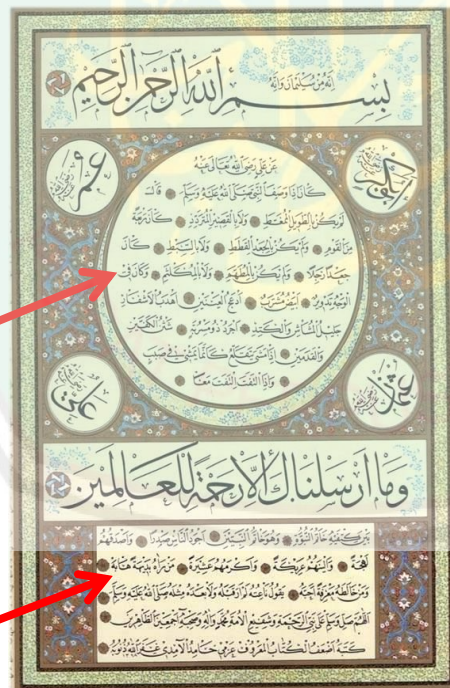 إنه من سليمان وإنه
بسم الله الرحمن الرحيم
ابو بكر
عمر
عن علي رضي الله تعالى عنه
كان اذا وصف النبي صلى الله عليه وسلم قال
لم يكن بالطويل الممغط ولا بالقصير المتردد كان ربعة
من القوم ولم يكن بالجعد القطط ولا بالسبط كان
جعدا رجلا ولم يكن بالمطهم ولا بالمكلثم وكان في
الوجه تدوير ابيض مشرب ادعج العينين اهدب الاشفار
جليل المشاش والكتد اجرد ذو مسربة شثن الكفين
والقدمين اذا مشى تقلع كأنما يمشي في صبب
واذا التفت التفت معا
عثمان
علي
وما ارسلناك الا رحمة للعالمين
بين كتفيه خاتم النبوة وهو خاتم النبيين اجود الناس صدرا واصدقهم
لهجة والينهم عريكة واكرمهم عشيرة من رآه بديهة هابه
ومن خالطه معرفة احبه يقول ناعته لم ار قبله ولا بعده مثله صلى الله عليه وسلم
اللهم صل وسلم على نبي الرحمة وشفيع الامة محمد وآله وصحبه اجمعين الطاهرين
كتبه اضعف الكتاب المعروف عزمي حامد الآمدي غفر الله ذنوبه